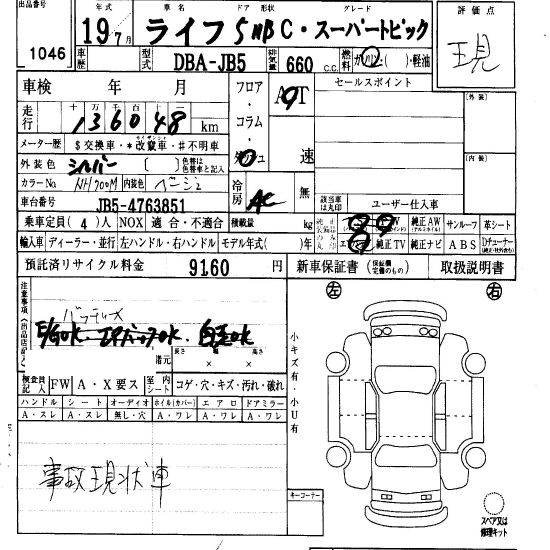 出品番号 1046
年式 19年7月
車名 ドア 形状 グレード
ライフ 5HB C・スーパートピック
評価点
現
車歴
型式 DBA-JB5
排気量 660 C.C.
燃料 ガソリン・( )・軽油
車検 年 月
フロア・コラム・ダッシュ
AT
速
セールスポイント
〔外装〕
走行 十 万 千 百 十 一
136048 km
メーター歴 $交換車・*改竄車・#不明車
外装色 シルバー ( ) 色替車は色替前と記入
〔内装〕
カラーNo. NH700M 内装色 ベージュ
冷房 AC 無
該当車は丸印
ユーザー仕入車
車台番号 JB5-4763851
乗車定員 ( 4 ) 人 NOX 適合・不適合 積載量 kg
純正AW サンルーフ 革シート
輸入車 ディーラー・並行 左ハンドル・右ハンドル モデル年式( )年
純正TV 純正ナビ ABS
預託済リサイクル料金 9160 円
新車保証書 (保証欄完備のもの) 取扱説明書
注意事項(出品店記入)
バッテリーズ
E/GOK・エアバックOK 自走OK
左 右
諸元 長さ 幅 高さ
× ×
小キズ有・小U有
検査員記入 FW A・X要ス 室内シート コゲ・穴・キズ・汚れ・破れ
ハンドル シート オーディオ ホイル(カバー) エアロ ドアミラー
A・スレ A・スレ 無し・穴 A・ワレ A・ワレ A・ワレ
事故現状車
キーコーナー
スペア又は修理キット